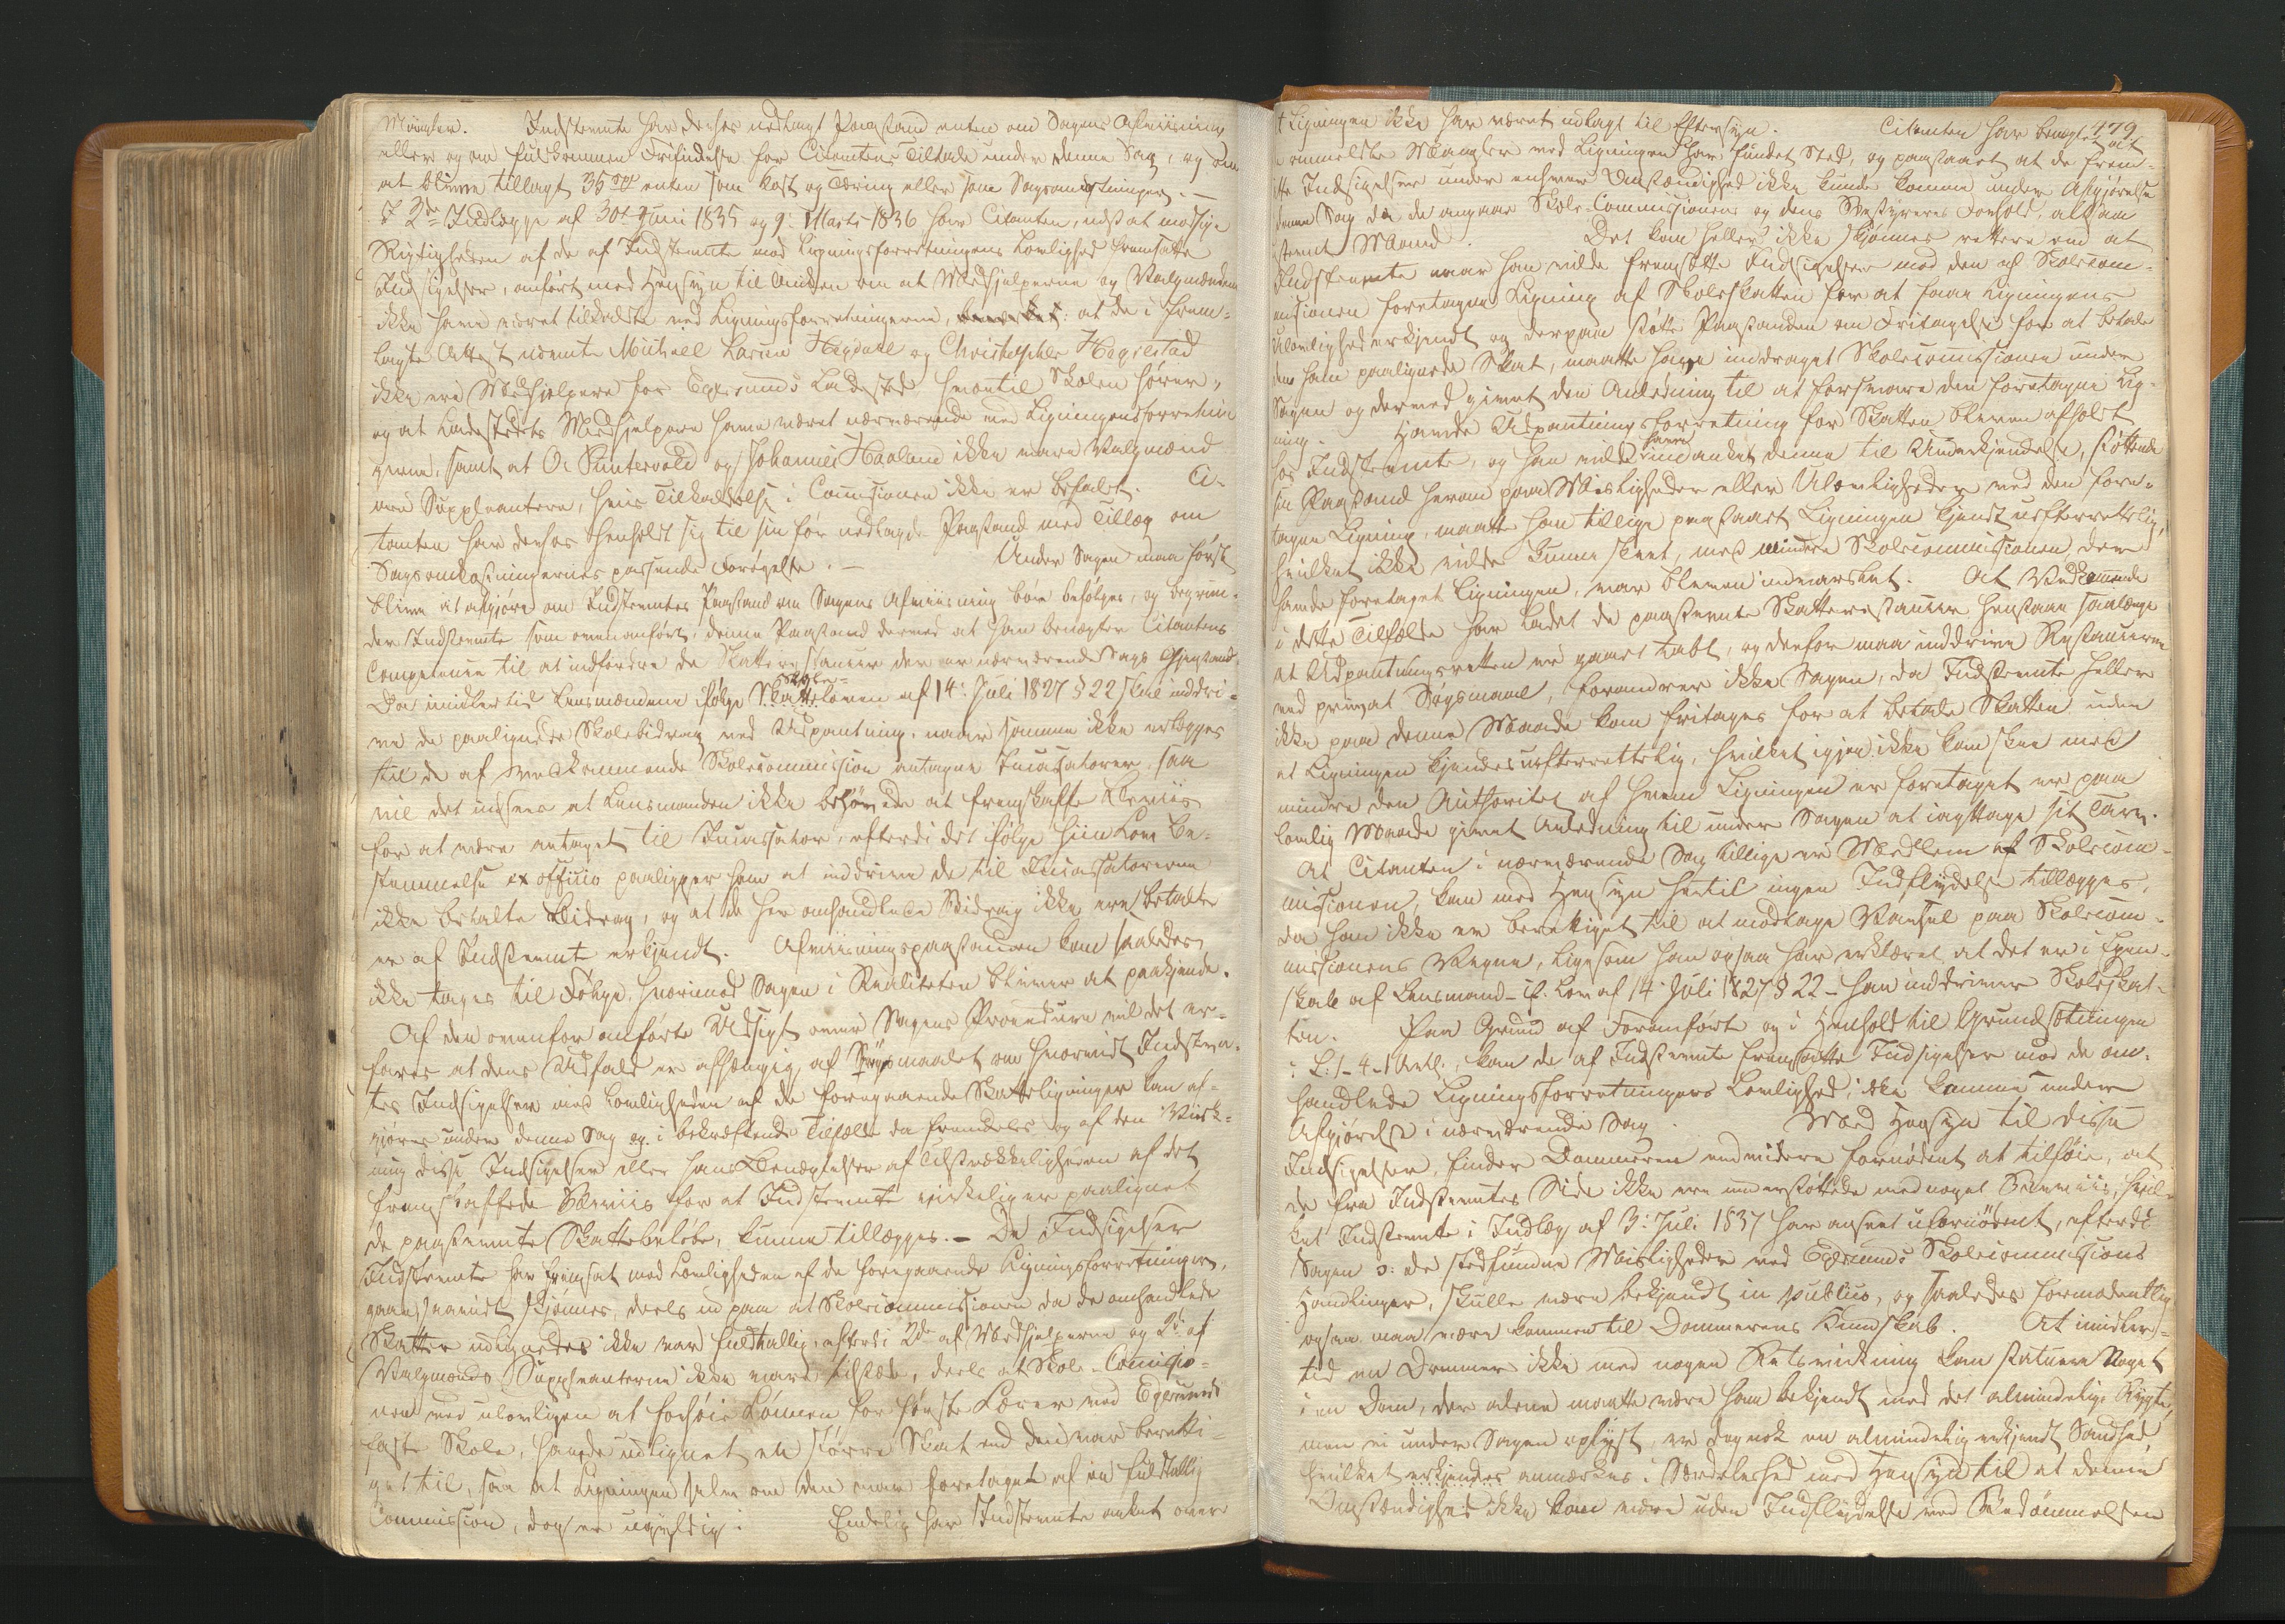 Mangler. Indstevnte har derhos nedlagt Paastand enten om Sagens Afviisning
eller og om fuldkommen Frifindelse for Citantens Tiltale under denne Sag, og om
at blive tillagt 35 Spd enten som Kost og Tæring eller som Sagsomkostninger. —
I 2de Indlægge af 30t Juni 1835 og 9: Marts 1836 har Citanten, næst at modsige
Rigtigheden af de af Indstevnte mod Ligningsforretningens Lovlighed fremsatte
Indsigelser, anført med Hensyn til Anken om at Medhjelperne og Valgmændene
ikke have været tilkaldte ved Ligningsforretningerne, at de i frem-
lagte Attest nævnte Michael Larsen Hegdal og Christopher Hegrestad
ikke ere Medhjelpere for Egersunds Ladested hvortil Skolen hører,
og at Ladestedets Medhjelpere have været nærværende ved Ligningsforretnin-
gerne, samt at O. Puntervold og Johannes Haaland ikke vare Valgmænd
men Suppleanter, hvis Tilkaldelse i Commissionen ikke er befalet. Ci-
tanten har derhos henholdt sig til sin før nedlagde Paastand med Tillæg om
Sagsomkostningernes passende Forøgelse. — Under Sagen maa først
blive at afgjøre om Indstevntes Paastand om Sagens Afviisning bør befølges, og begrun-
der Indstevnte som ovenanført, denne Paastand dermed at han benægter Citantens
Competence til at indfordre de Skatterestancer der er nærværende Sags Gjenstand.
Da imidlertid Lensmændene ifølge Skole-
loven af 14: Juli 1827 § 22 skal inddri-
ve de paalignede Skolebidrag ved Udpantning, naar samme ikke erlægges
til de af vedkommende Skolecommission antagne Incassatorer, saa
vil det indsees at Lensmanden ikke behøvede at fremskaffe Beviis
for at være antaget til Incassator, efterdi det ifølge hiin Lovs Be-
stemmelse ex officio paaligger ham at inddrive de til Incassatorerne
ikke betalte Bidrag, og at de her omhandlede Bidrag ikke ere betalte
er af Indstevnte erkjendt. Afviisningspaastanden kan saaledes
ikke tages til Følge, hvorimod Sagen i Realiteten bliver at paakjende.
Af den ovenfor anførte Udsigt over Sagens Procedure vil det er-
fares at dens Udfald er afhængig af Spørgsmaalet om hvorvidt Indstevn-
tes Indsigelser mod Lovligheden af de foregaaende Skatteligninger kan af-
gjøres under denne Sag og i bekræftende Tilfælde da fremdeles og af den Virk-
ning disse Indsigelser eller hans Benægtelser af Tilstrækkeligheden af det
fremskaffede Beviis for at Indstevnte virkelig er paalignet
de paastevnte Skattebeløbe, kunne tillægges. — De Indsigelser
Indstevnte har fremsat mod Lovligheden af de foregaaende Ligningsforretninger,
gaae, saavidt skjønnes, deels ud paa at Skolecommissionen da de omhandlede
Skatter udlignedes ikke var fuldtallig, efterdi 2de af Medhjelperne og 2de af
Valgmænds Suppleanterne ikke vare tilstede, deels at Skole-Commissio-
nen ved ulovligen at forhøie Lønnen for første Lærer ved Egersunds
faste Skole, havde udlignet en større Skat end den var beretti-
get til, saa at Ligningen selv om den var foretaget af en fuldtallig
Commission, dog er ugyldig. Endelig har Indstevnte anket over
179
at Ligningen ikke har været udlagt til Eftersyn. Citanten har benægtet at
ommeldte Mangler ved Ligningen har fundet Sted, og paastaaet at de frem-
satte Indsigelser under enhver Omstændighed ikke kunde komme under Afgjørelse
denne Sag da de angaae Skole-Commissionens og dens Bestyreres Forhold, altsaa
stevnt Mænd. Det kan heller ikke skjønnes rettere end at
Indstevnte naar han vilde fremsætte Indsigelser mod den af Skolecom-
missionen foretagne Ligning af Skoleskatten for at faae Ligningens
Ulovlighed erkjendt og derpaa støtte Paastanden om Fritagelse for at betale
den ham paalignede Skat, maatte have inddraget Skolecommissionen under
Sagen og dermed givet den Anledning til at forsvare den foretagne Lig-
ning. Havde Udpantningsforretning for Skatten bleven afholdt
hos Indstevnte, og han vilde have indanket denne til Underkjendelse, støttende
sin Paastand herom paa Misligheder eller Ulovligheder ved den fore-
tagne Ligning, maatte han tillige paastaaet Ligningen kjendt uefterrettelig,
hvilket ikke vilde kunne skeet, med mindre Skolecommissionen, der
havde foretaget Ligningen, var bleven indvarslet. At Vedkommende
i dette Tilfælde har ladet de paastevnte Skatterestancer henstaae saalænge
at Udpantningsretten er gaaet tabt, og derfor maa inddrive Restancerne
ved privat Søgsmaal, forandrer ikke Sagen, da Indstevnte heller
ikke paa denne Maade kan fritages for at betale Skatten uden
at Ligningen kjendes uefterrettelig, hvilket igjen ikke kan skee med
mindre den Authoritet af hvem Ligningen er foretaget er paa
lovlig Maade givet Anledning til under Sagen at iagttage sit Tarv.
At Citanten i nærværende Sag tillige er Medlem af Skolecom-
missionen, kan med Hensyn hertil ingen Indflydelse tillægges,
da han ikke er berettiget til at modtage Varsel paa Skolecom-
missionens Vegne, ligesom han ogsaa har erklæret at det er i Egen-
skab af Lensmand — cf. Lov af 14 Juli 1827 § 22 — han inddriver Skoleskat-
ten. Paa Grund af Foranførte og i Henhold til Grundsætningen
i L: 1-4-1 Artl., kan de af Indstevnte fremsatte Indsigelser mod de om-
handlede Ligningsforretningers Lovlighed, ikke komme under
Afgjørelse i nærværende Sag. Med Hensyn til disse
Indsigelser, finder Dommeren endvidere fornødent at tilføie, at
de fra Indstevntes Side ikke ere understøttede med noget Beviis, hvil-
ket Indstevnte i Indlæg af 3: Juli 1837 har anseet ufornødent, efterdi
Sagen ɔ: de stedfundne Misligheder ved Egersunds Skolecommissions
Handlinger, skulle være bekjendt in publico, og saaledes formodentlig
ogsaa maa være kommen til Dommerens Kundskab. At imidler-
tid en Dommer ikke med nogen Retsvirkning kan statuere Noget
i en Dom, der alene maatte være ham bekjendt med det almindelige Rygte,
men ei under Sagen oplyst, er dog nok en almindelig erkjendt Sandhed,
hvilket erkjendes anmærkes i Særdeleshed med Hensyn til at denne
Omstændighed ikke kan være uden Indflydelse ved Bedømmelsen